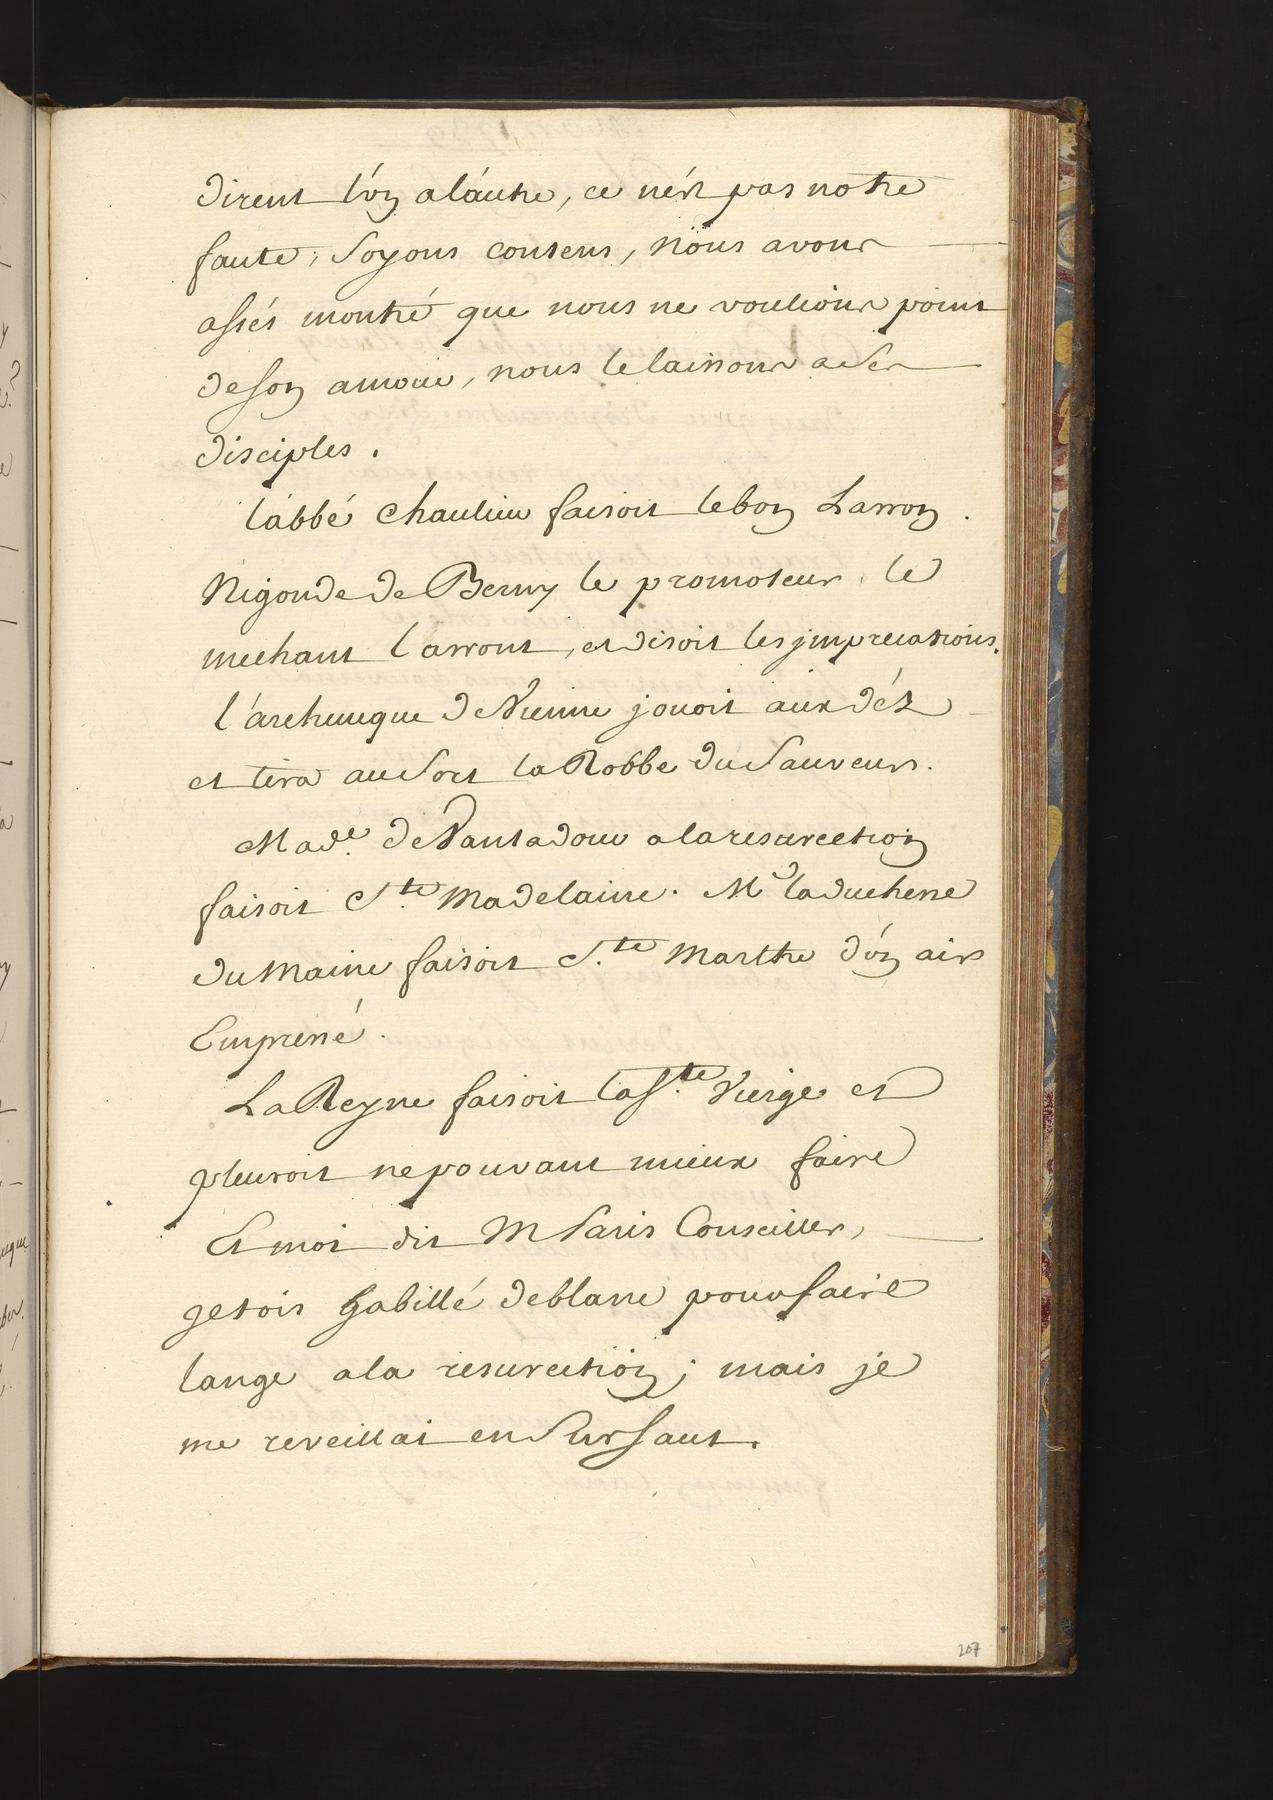 dirent l'un a lautre, ce nést pas notre
faute, soyons contens, nous avons
assés montré que nous ne voulions point
de son amour, nous le laissons a ses
disciples.
l'abbé Chaulieu faisoit le bon Larron.
Nigon de de Berny le promoteur, le
mechant l'arront, et disoit les jmprecations.
l'archeuêque de Vienne jouoit aux déz
et tira au sort la Robbe du Sauveur.
Made. de Vantadour a la resurection
faisoit Ste. Madelaine. Md la duchesse
du Maine faisoit S.te Marthe d'un air
Empressé.
La Reyne faisoit la Ste. Vierge et
pleuroit ne pouvant mieux faire
Et moi dit M Paris Conseiller,
jetois habillé de blanc pour faire
lange a la resurection; mais je
me reveillai en sursaut.
207